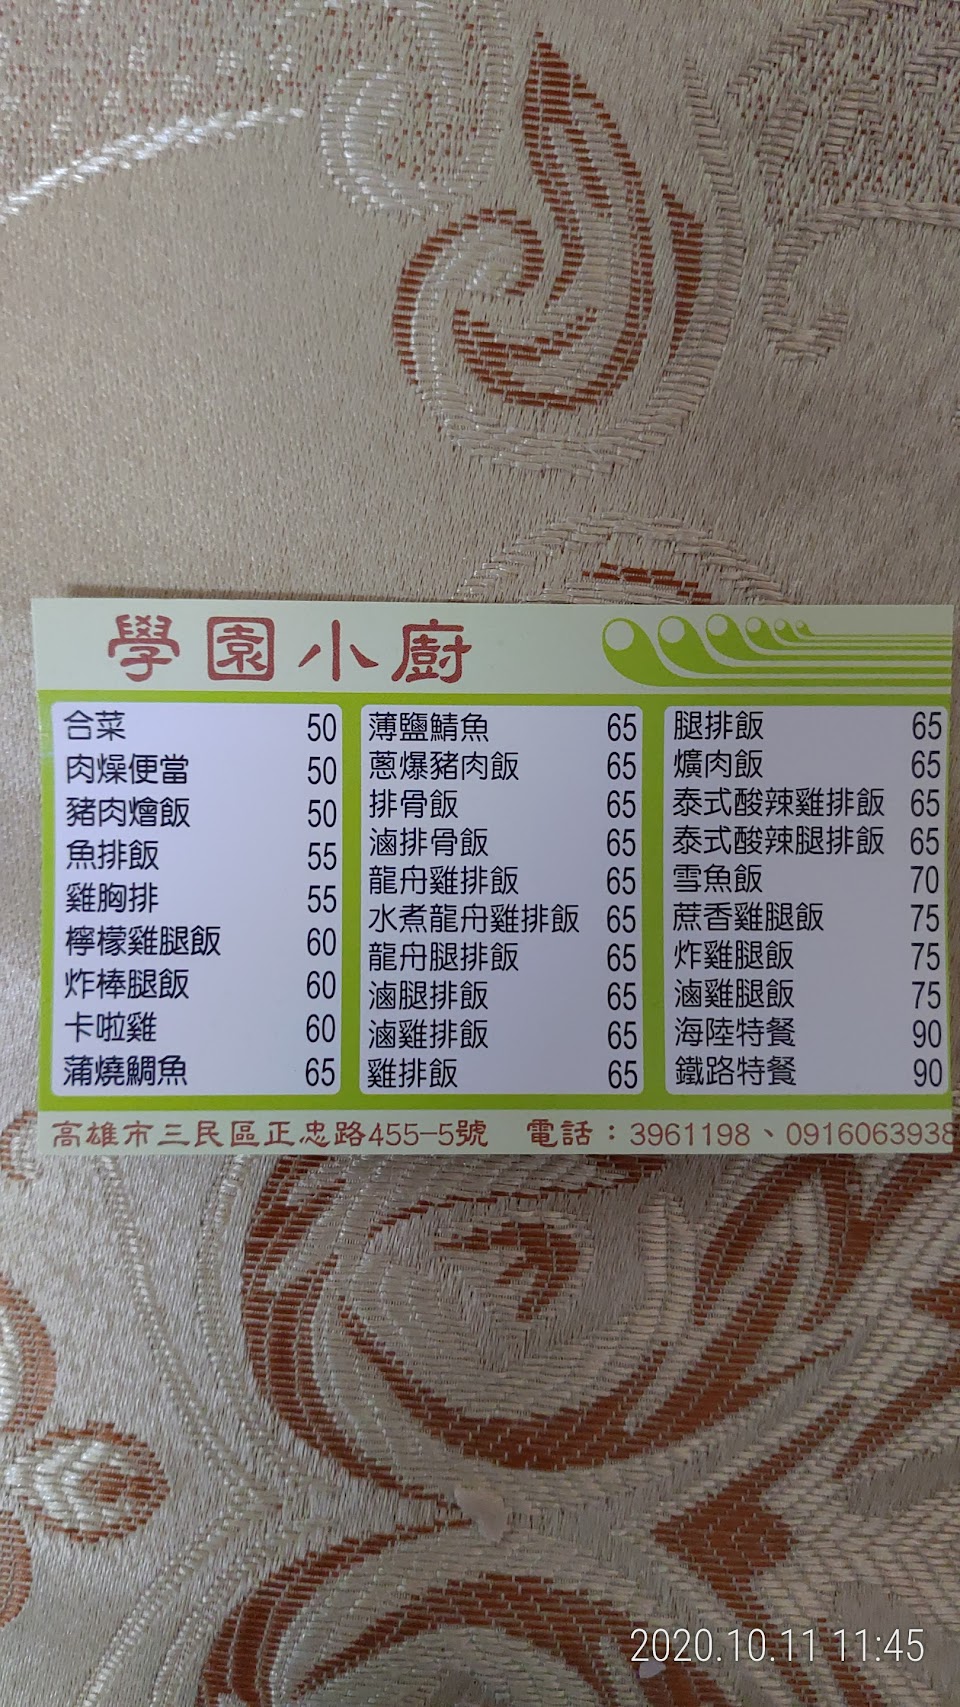 學園小廚
合菜 50
肉燥便當 50
豬肉燴飯 50
魚排飯 55
雞胸排 55
檸檬雞腿飯 60
炸棒腿飯 60
卡啦雞 60
蒲燒鯛魚 65
薄鹽鯖魚 65
蔥爆豬肉飯 65
排骨飯 65
滷排骨飯 65
龍舟雞排飯 65
水煮龍舟雞排飯 65
龍舟腿排飯 65
滷腿排飯 65
滷雞排飯 65
雞排飯 65
腿排飯 65
爌肉飯 65
泰式酸辣雞排飯 65
泰式酸辣腿排飯 65
雪魚飯 70
蔗香雞腿飯 75
炸雞腿飯 75
滷雞腿飯 75
海陸特餐 90
鐵路特餐 90
高雄市三民區正忠路455-5號 電話：3961198、0916063938
2020.10.11 11:45